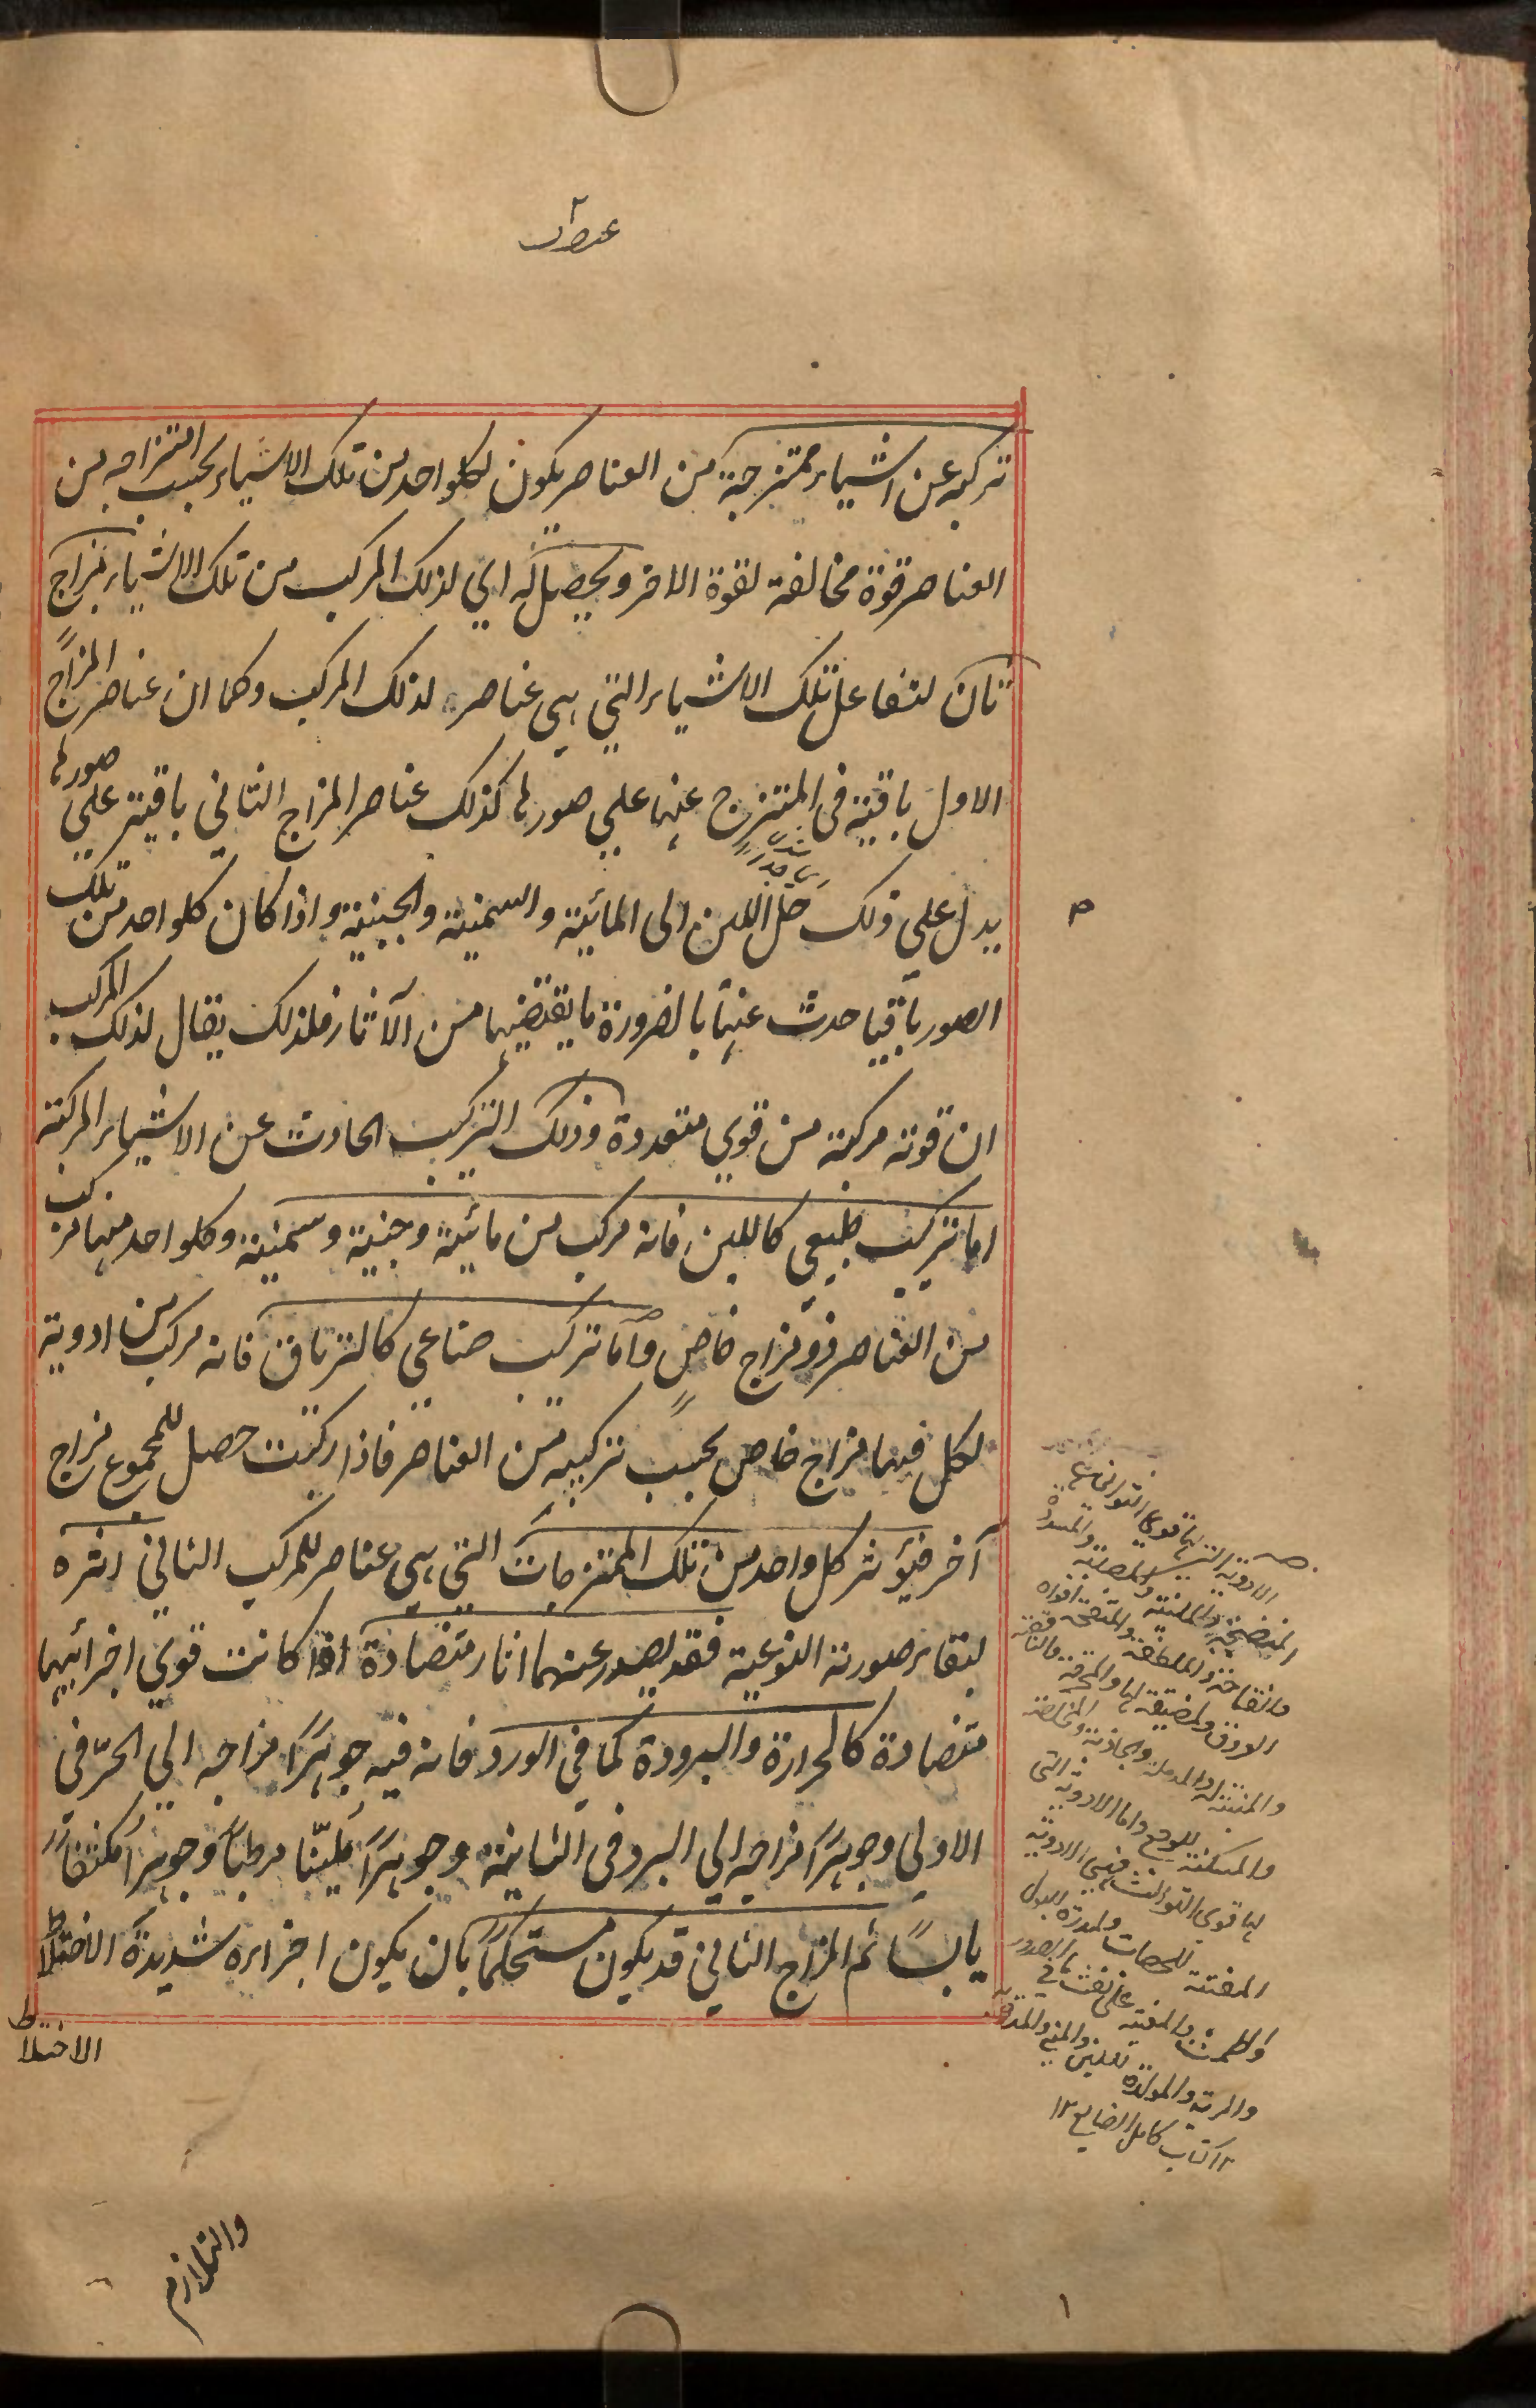 تركبه عن اشياء ممتزجة من العناصر يكون لكلواحد من تلك الاشياء بحسب امتزاجه من
العناصر قوة مخالفة لقوة الاخر ويحصل له اي لذلك المركب من تلك الاشياء مزاج
ثان لتفاعل تلك الاشياء التي هي عناصر لذلك المركب وكما ان عناصر المزاج
الاول باقية في الممتزج عنها علي صورها كذلك عناصر المزاج الثاني باقية علي صورها
يدل علي ذلك حل اللبن الى المائية والسمنية والجبنية واذا كان كلواحد من تلك
الصور باقيا حدث عنها بالضرورة ما يقتضيها من الآثار فلذلك يقال لذلك المركب
ان قوته مركبة من قوي متعددة وذلك التركيب الحادث عن الاشياء المركبة
اما تركيب طبيعي كاللبن فانه مركب من مائية وجبنية وسمنية وكلواحد منها مركب
من العناصر ذو مزاج خاص واما تركيب صناعي كالترياق فانه مركب من ادوية
لكل فيها مزاج خاص بحسب تركيبه من العناصر فاذا ركبت حصل للمجموع مزاج
آخر فيؤثر كل واحد من تلك الممتزجات التي هي عناصر للمركب الثاني اثره
لبقاء صورته النوعية فقد يصدر عنهما اثار متضادة اذا كانت قوي اجزائها
متضادة كالحرارة والبرودة كما في الورد فانه فيه جوهرًا مزاجه الي الحرّ في
الاولي وجوهرًا مزاجه الي البرد في الثانية وجوهرًا مليّنا مرطبًا وجوهرًا مكثفًا
يابسًا ثم المزاج الثاني قد يكون مستحكمًا بان يكون اجزاءه شديدة الاختلاط
الاختلاط
الادوية التي لها قوي الثواني هي
المنضجة والملينة والمصلبة والمسددة
والفتاحة والملطفة والمفتحة افواه
العروق والمضيقة لها والمحرقة
والمدملة والجاذبة
والمسكنة للوجع واما الادوية التي
لها قوي الثوالث فهي الادوية
المفتتة للحصاة والمدرة للبول
والطمث والمعينة علي نفث ما في الصدر
والمولدة للبن والمني
١٢ كتاب كامل الصناعة ١٢
والتلازم